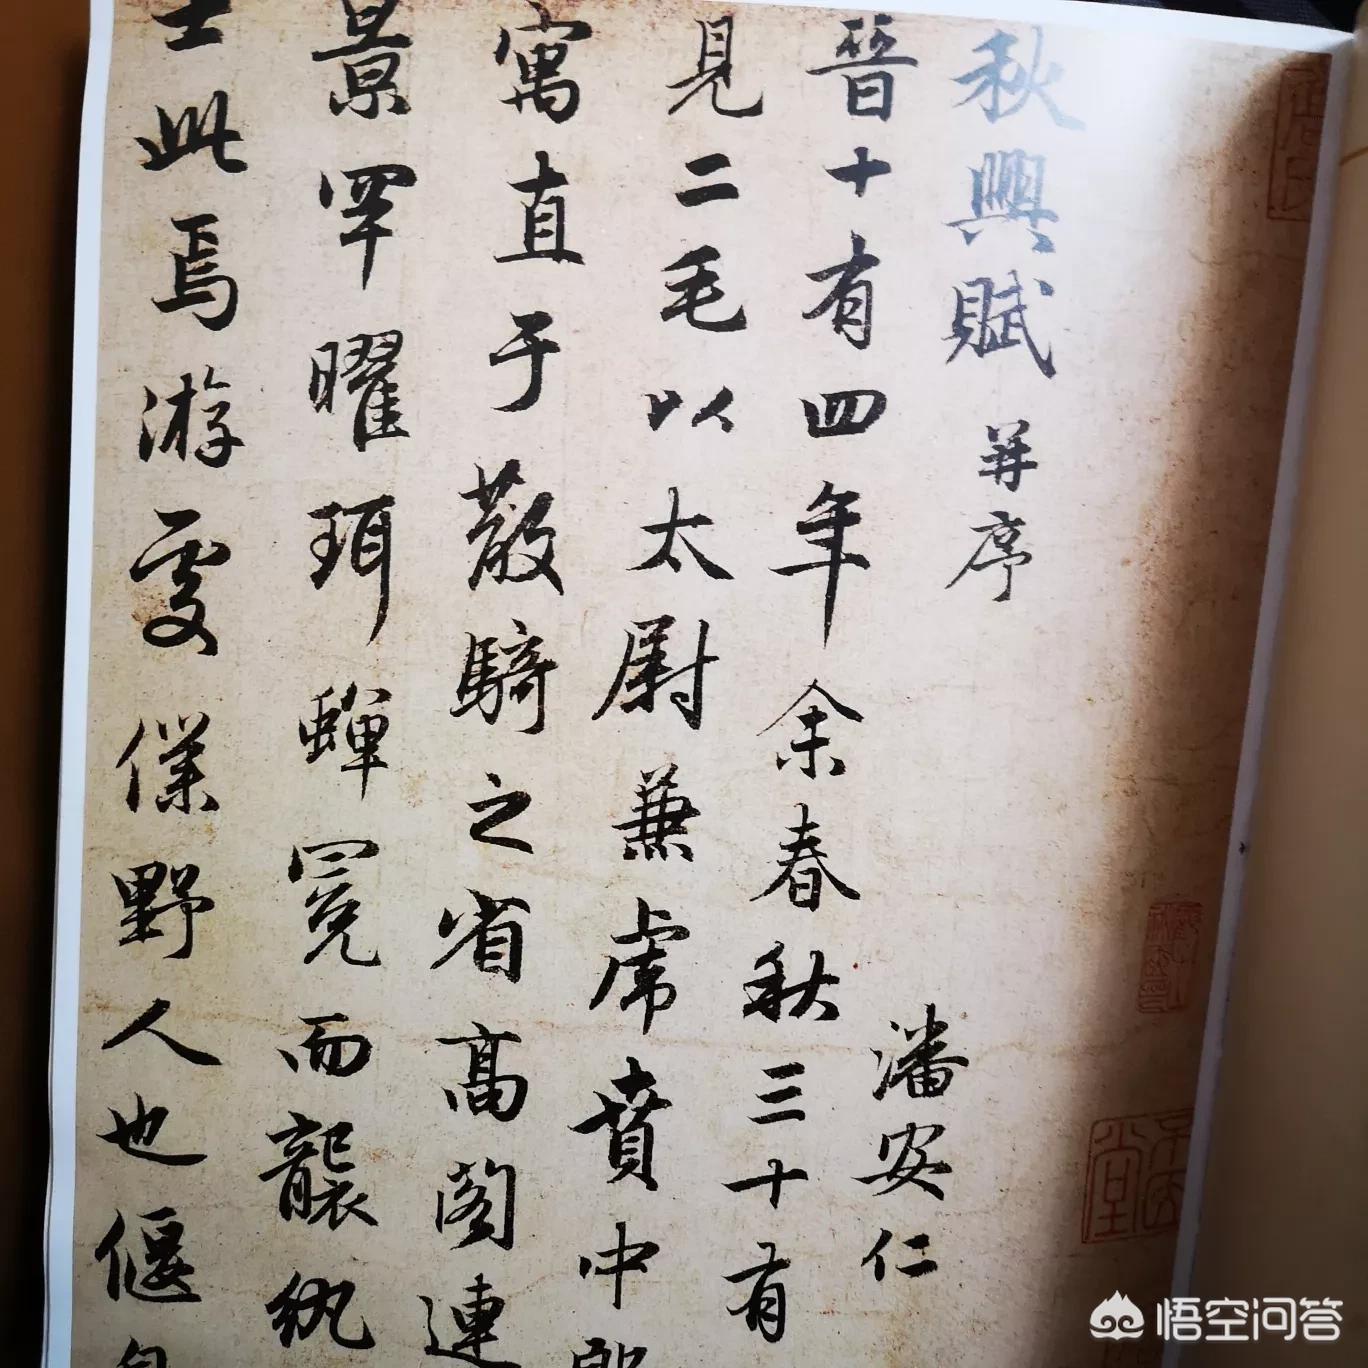 秋興賦 并序
潘安仁
晉十有四年余春秋三十有
見二毛以太尉兼虎賁中郎
寓直于散騎之省高閣連
景罕曜珥蟬冕而襲紈
士此焉游處僕野人也偃息
悟空问答